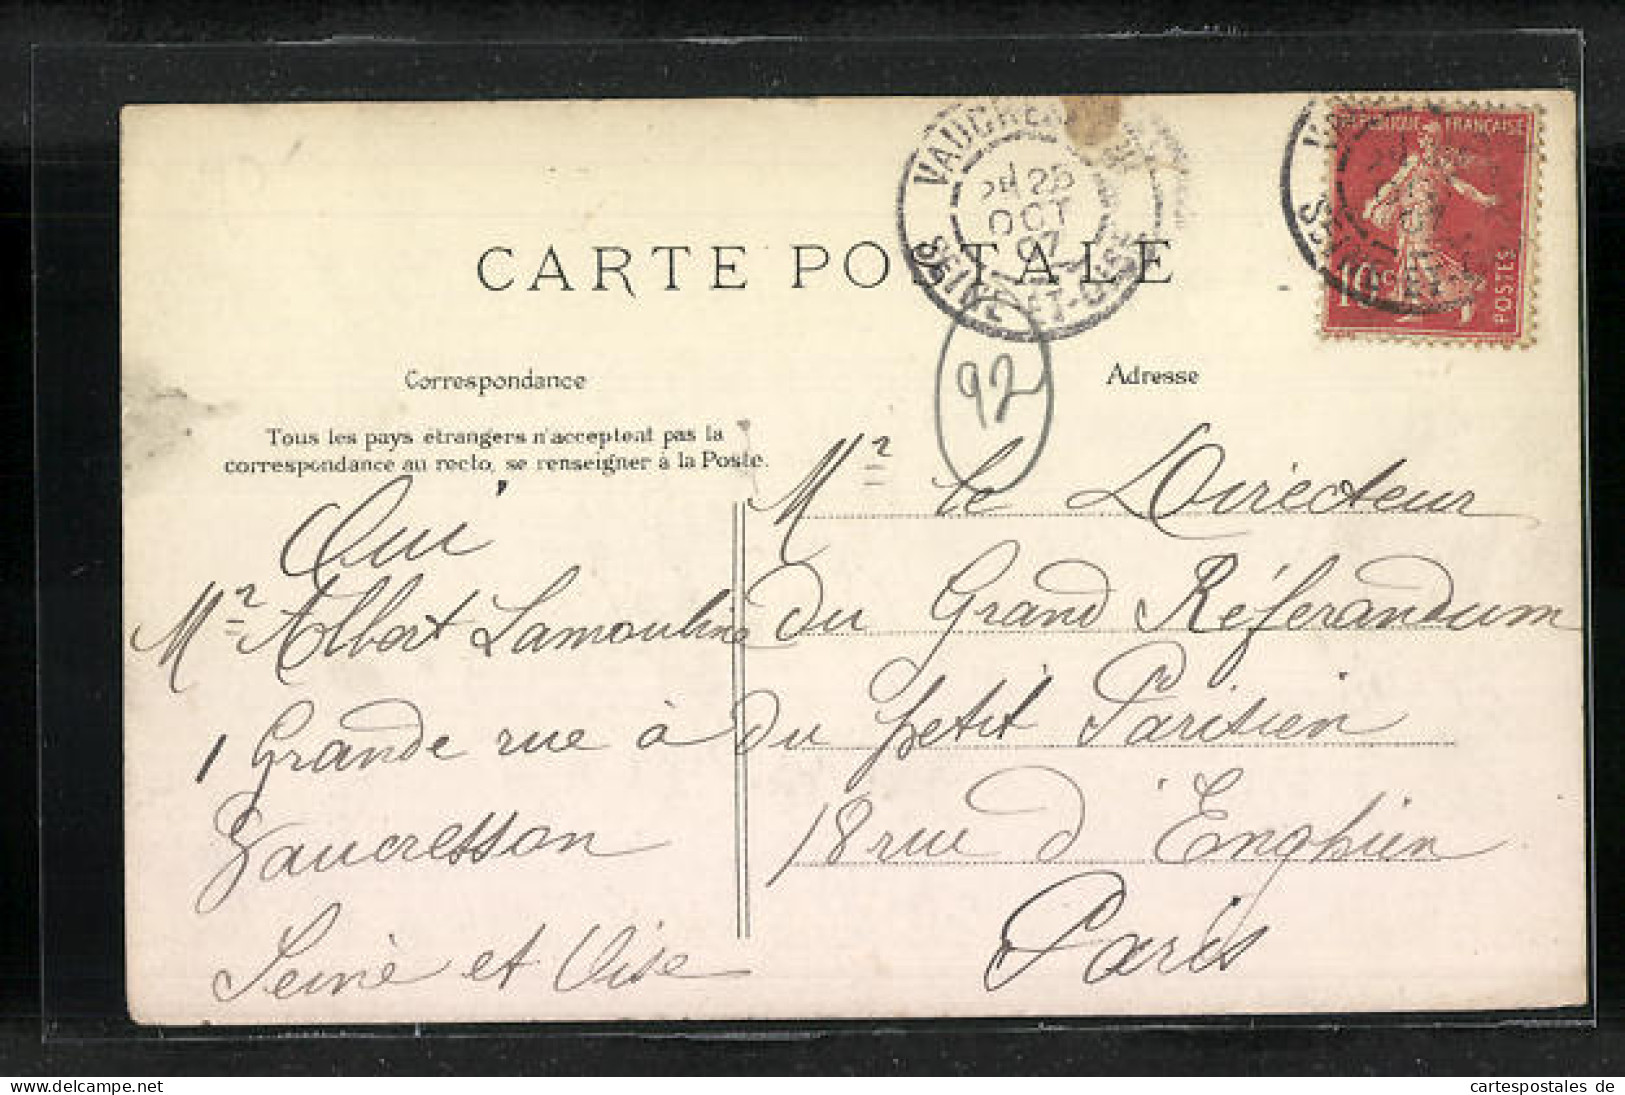 VAUCRESSON
28
OCT
07
SEINE-ET-OISE
RÉPUBLIQUE FRANÇAISE
10 c
POSTES
CARTE POSTALE
92
Correspondance
Adresse
Tous les pays étrangers n'acceptent pas la
correspondance au recto, se renseigner à la Poste.
Oui
Mr Albert Lamouline
1 Grande rue à
Vaucresson
Seine et Oise
Mr le Directeur
du Grand Réferandum
du petit Parisien
18 rue d'Enghien
Paris
(c) cartespostales-shop
cartespostales de